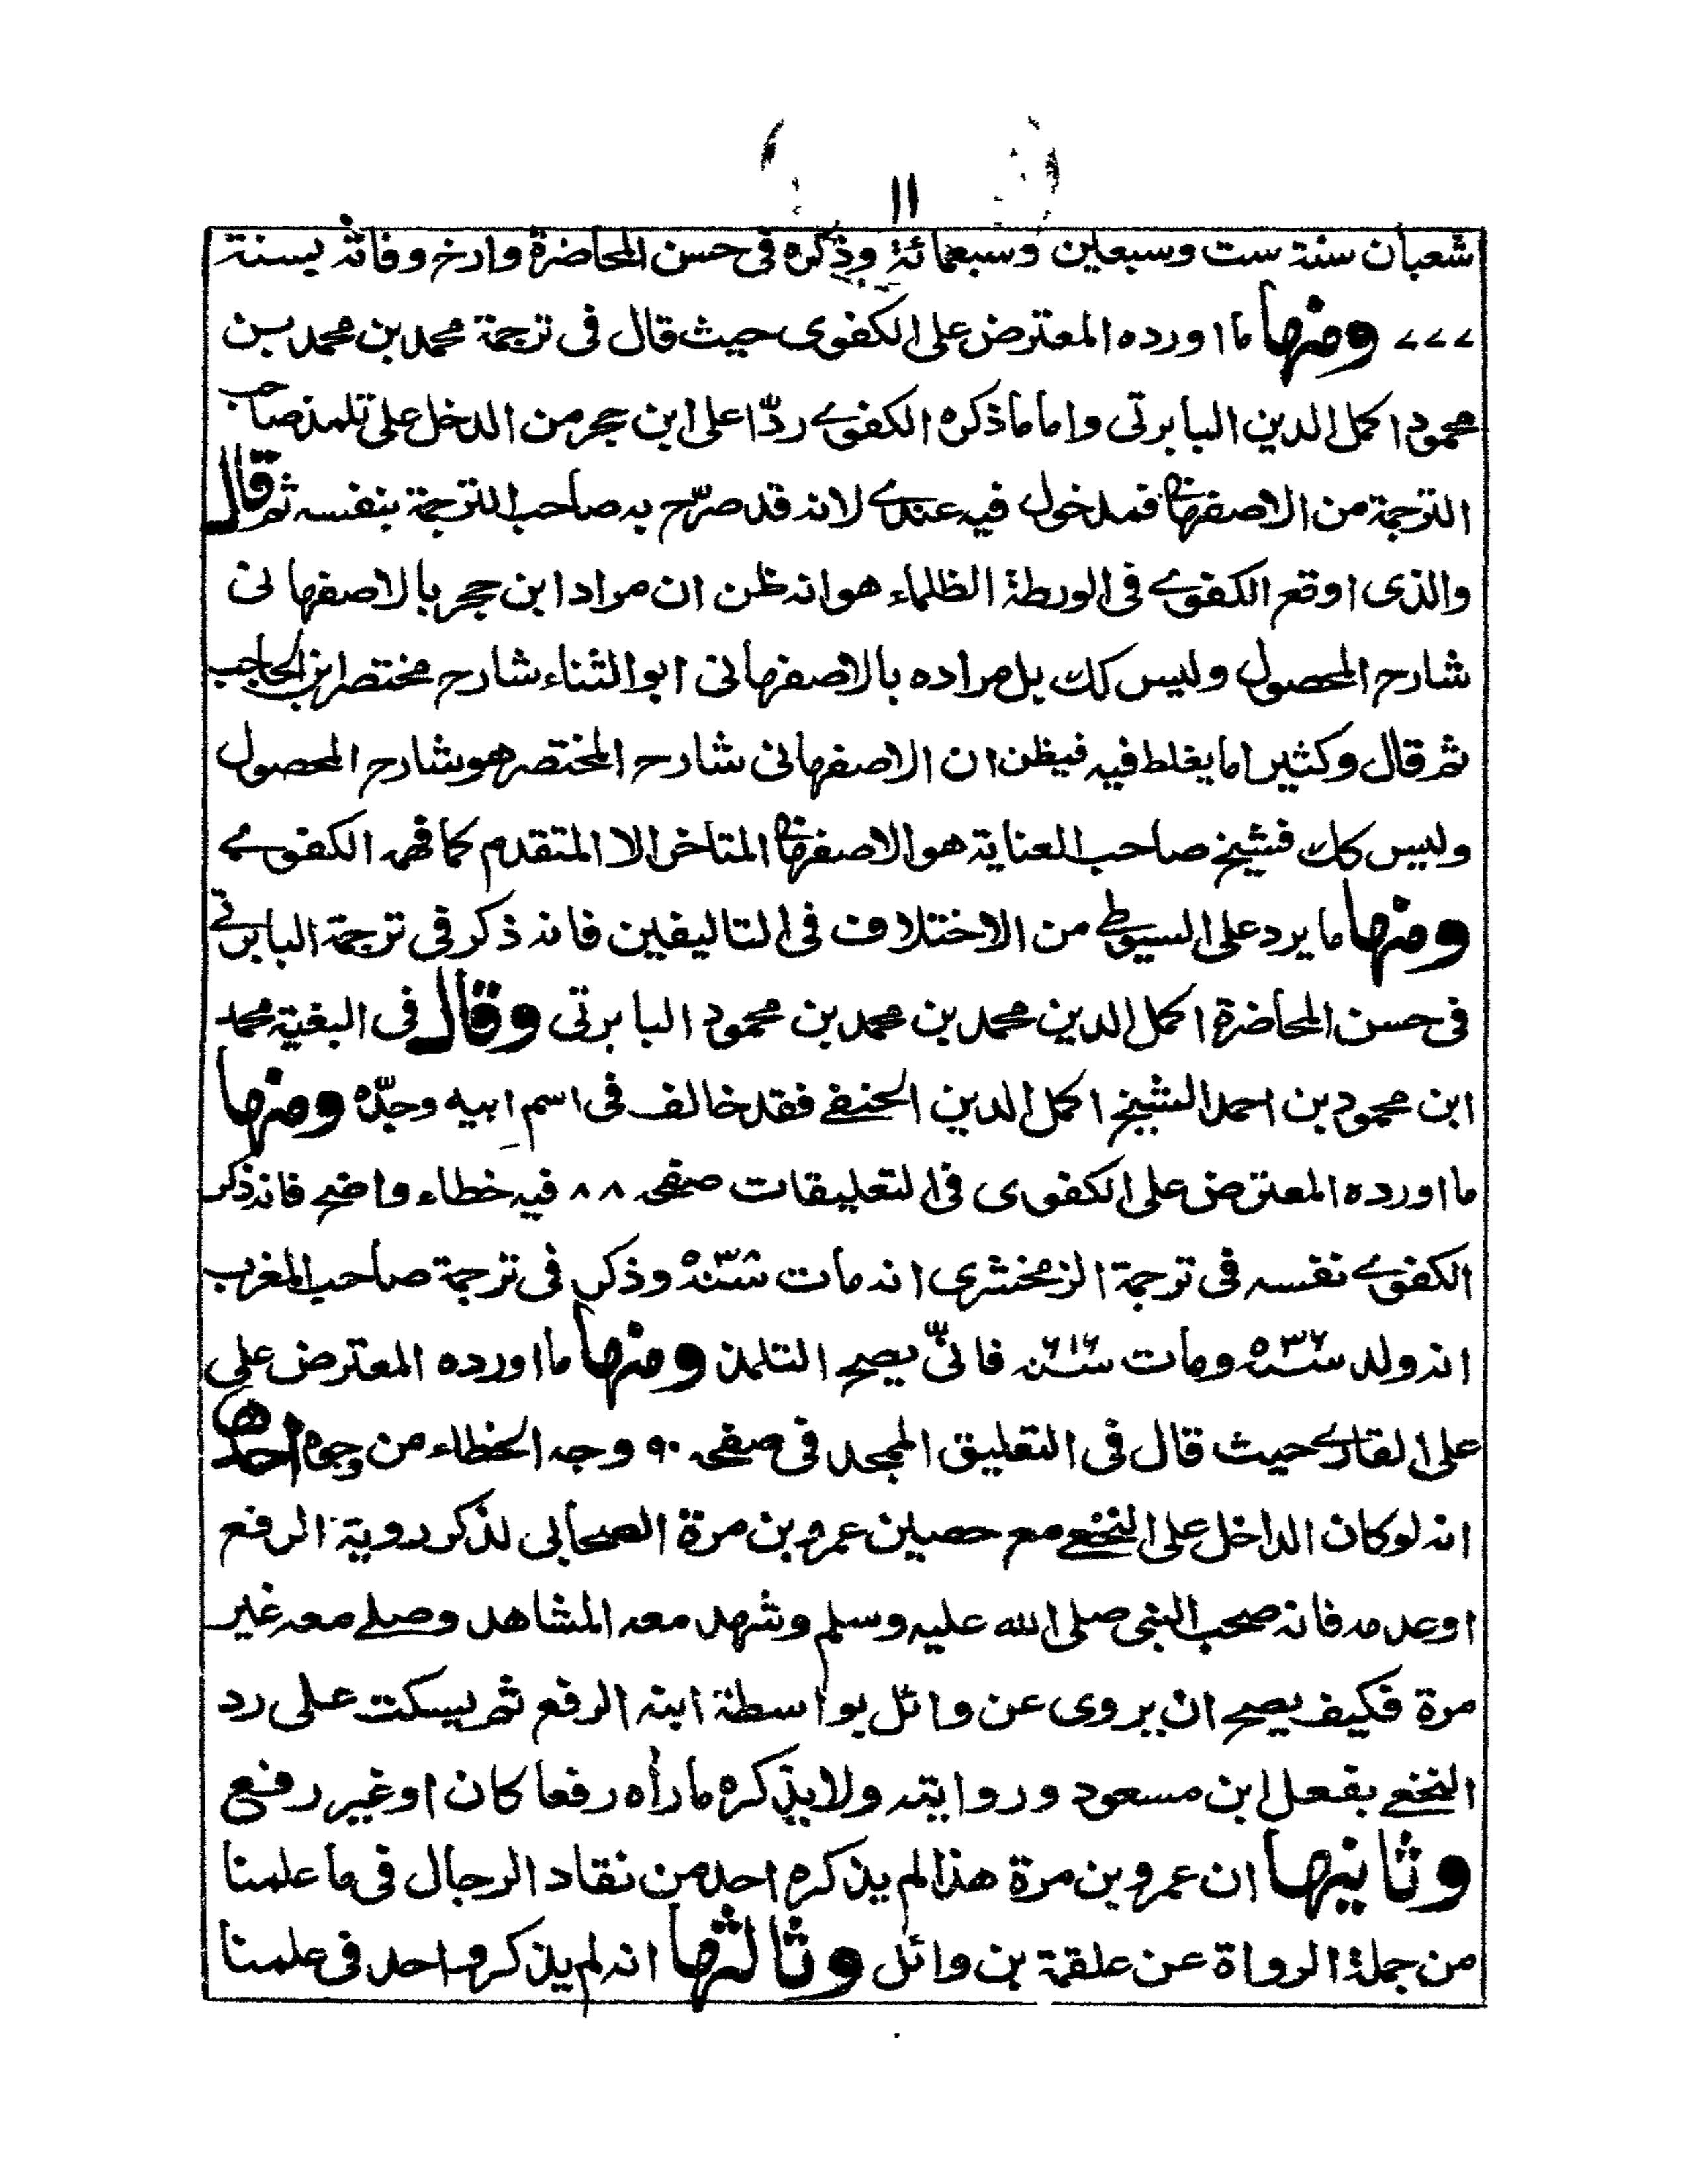 ١١
شعبان سنة ست وسبعين وسبعمائة وذكره في حسن المحاضرة وارخ وفاته بسنة
٧٧٧ ومنها ما اورده المعترض على الكفوى حيث قال في ترجمة محمد بن محمد بن
محمود اكمل الدين البابرتى واما ما ذكره الكفوے ردّا على ابن حجر من الدخل على تلمذ صاحب
الترجمة من الاصفهانى فمدخول فيه عندے لانه قد صرّح به صاحب الترجمة بنفسه ثم قال
والذى اوقع الكفوے في الورطة الظلماء هو انه ظن ان مراد ابن حجر بالاصفهانى
شارح المحصول وليس كك بل مراده بالاصفهانى ابو الثناء شارح مختصر ابن الحاجب
ثم قال وكثيرا ما يغلط فيه فيظن ان الاصفهانى شارح المختصر هو شارح المحصول
وليس كك فشيخ صاحب العناية هو الاصفهانى المتاخر الا المتقدم كما فهمه الكفوے
ومنها ما يرد على السيوطے من الاختلاف في التاليفين فانه ذكر في ترجمة البابرتے
في حسن المحاضرة اكمل الدين محمد بن محمد بن محمود البابرتى وقال في البغية محمد
ابن محمود بن احمد الشيخ اكمل الدين الحنفے فقد خالف في اسم ابيه وجدّه ومنها
ما اورده المعترض على الكفوى في التعليقات صفحه ٨٨ فيه خطاء واضح فانه ذكر
الكفوے نفسه في ترجمة الزمخشرى انه مات سنة وذكر في ترجمة صاحب المغرب
انه ولد سنة ومات سنة فانّى يصح التلمذ ومنها ما اورده المعترض على
على القارے حيث قال في التعليق الممجد في صفحه ٩٠ وجه الخطاء من وجوه احدها
انه لو كان الداخل على النخعے مع حصين عمرو بن مرة الصحابى لذكر روية الرفع
او عدمه فانه صحب النبى صلى الله عليه وسلم وشهد معه المشاهد وصلے معه غير
مرة فكيف يصح ان يروى عن وائل بواسطة ابنه الرفع ثم يسكت على رد
النخعے بفعل ابن مسعود وروايته ولا يذكره ما رأه رفعا كان او غير رفع
وثانيها ان عمرو بن مرة هذا لم يذكره احد من نقاد الرجال في ما علمنا
من جملة الرواة عن علقمة بن وائل وثالثها انه لم يذكره احد في علمنا